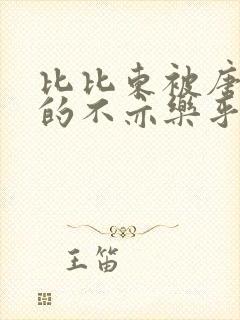 比比东被唐
的不亦乐乎
王笛